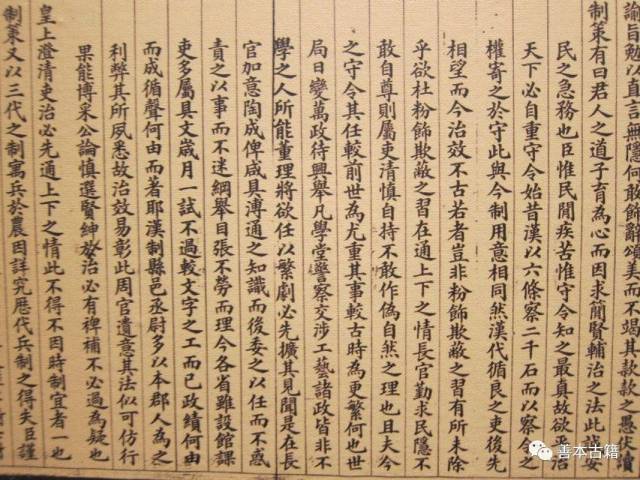 諭旨勉以直言無隱何敢飾辭頌美而不竭其款款之愚伏讀
制策有曰君人之道子育為心而因求簡賢輔治之法此安
民之急務也臣惟民間疾苦惟守令知之最真故欲平治
天下必自重守令始昔漢以六條察二千石而以察令之
權寄之於守此與今制用意相同然漢代循良之吏後先
相望而今治效不古若者豈非粉飾欺蔽之習有所未除
乎欲杜粉飾欺蔽之習在通上下之情長官勤求民隱不
敢自尊則屬吏清慎自持不敢作偽自然之理也且夫今
之守令其任較前世為尤重其事較古時為更繁何也世
局日變萬政待興舉凡學堂警察交涉工藝諸政皆非不
學之人所能董理將欲任以繁劇必先擴其見聞是在長
官加意陶成俾咸具溥通之知識而後委之以任而不惑
責之以事而不迷綱舉目張不勞而理今各省雖設館課
吏多屬具文歲月一試不過較文字之工而已政績何由
而成循聲何由而著耶漢制縣邑丞尉多以本郡人為之
利弊其所夙悉故治效易彰此周官遺意其法似可仿行
果能博采公論慎選賢紳於治必有裨補不必過為疑也
皇上澄清吏治必先通上下之情此不得不因時制宜者一也
制策又以三代之制寓兵於農因詳究歷代兵制之得失臣謹
善本古籍